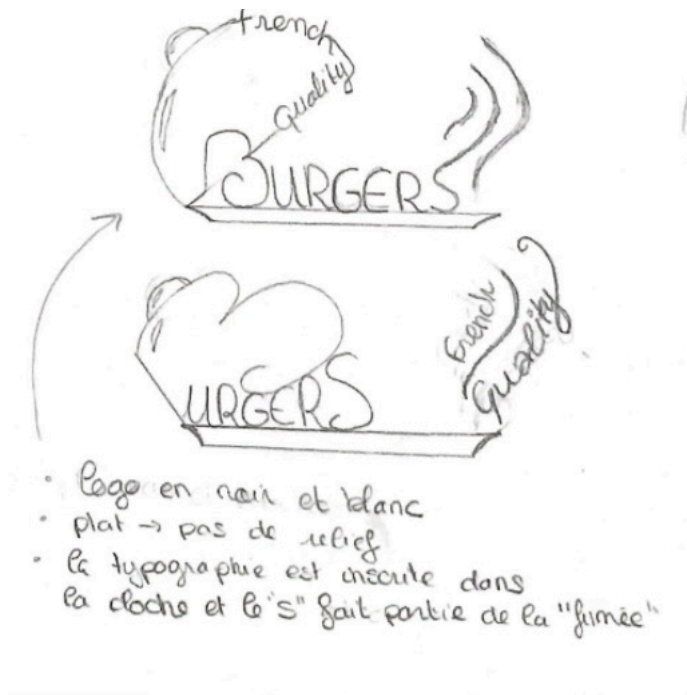 French
Quality
BURGERS
French
Quality
URGERS
• logo en noir et blanc
• plat → pas de relief
• la typographie est inscrite dans
la cloche et le "s" fait partie de la "fumée"